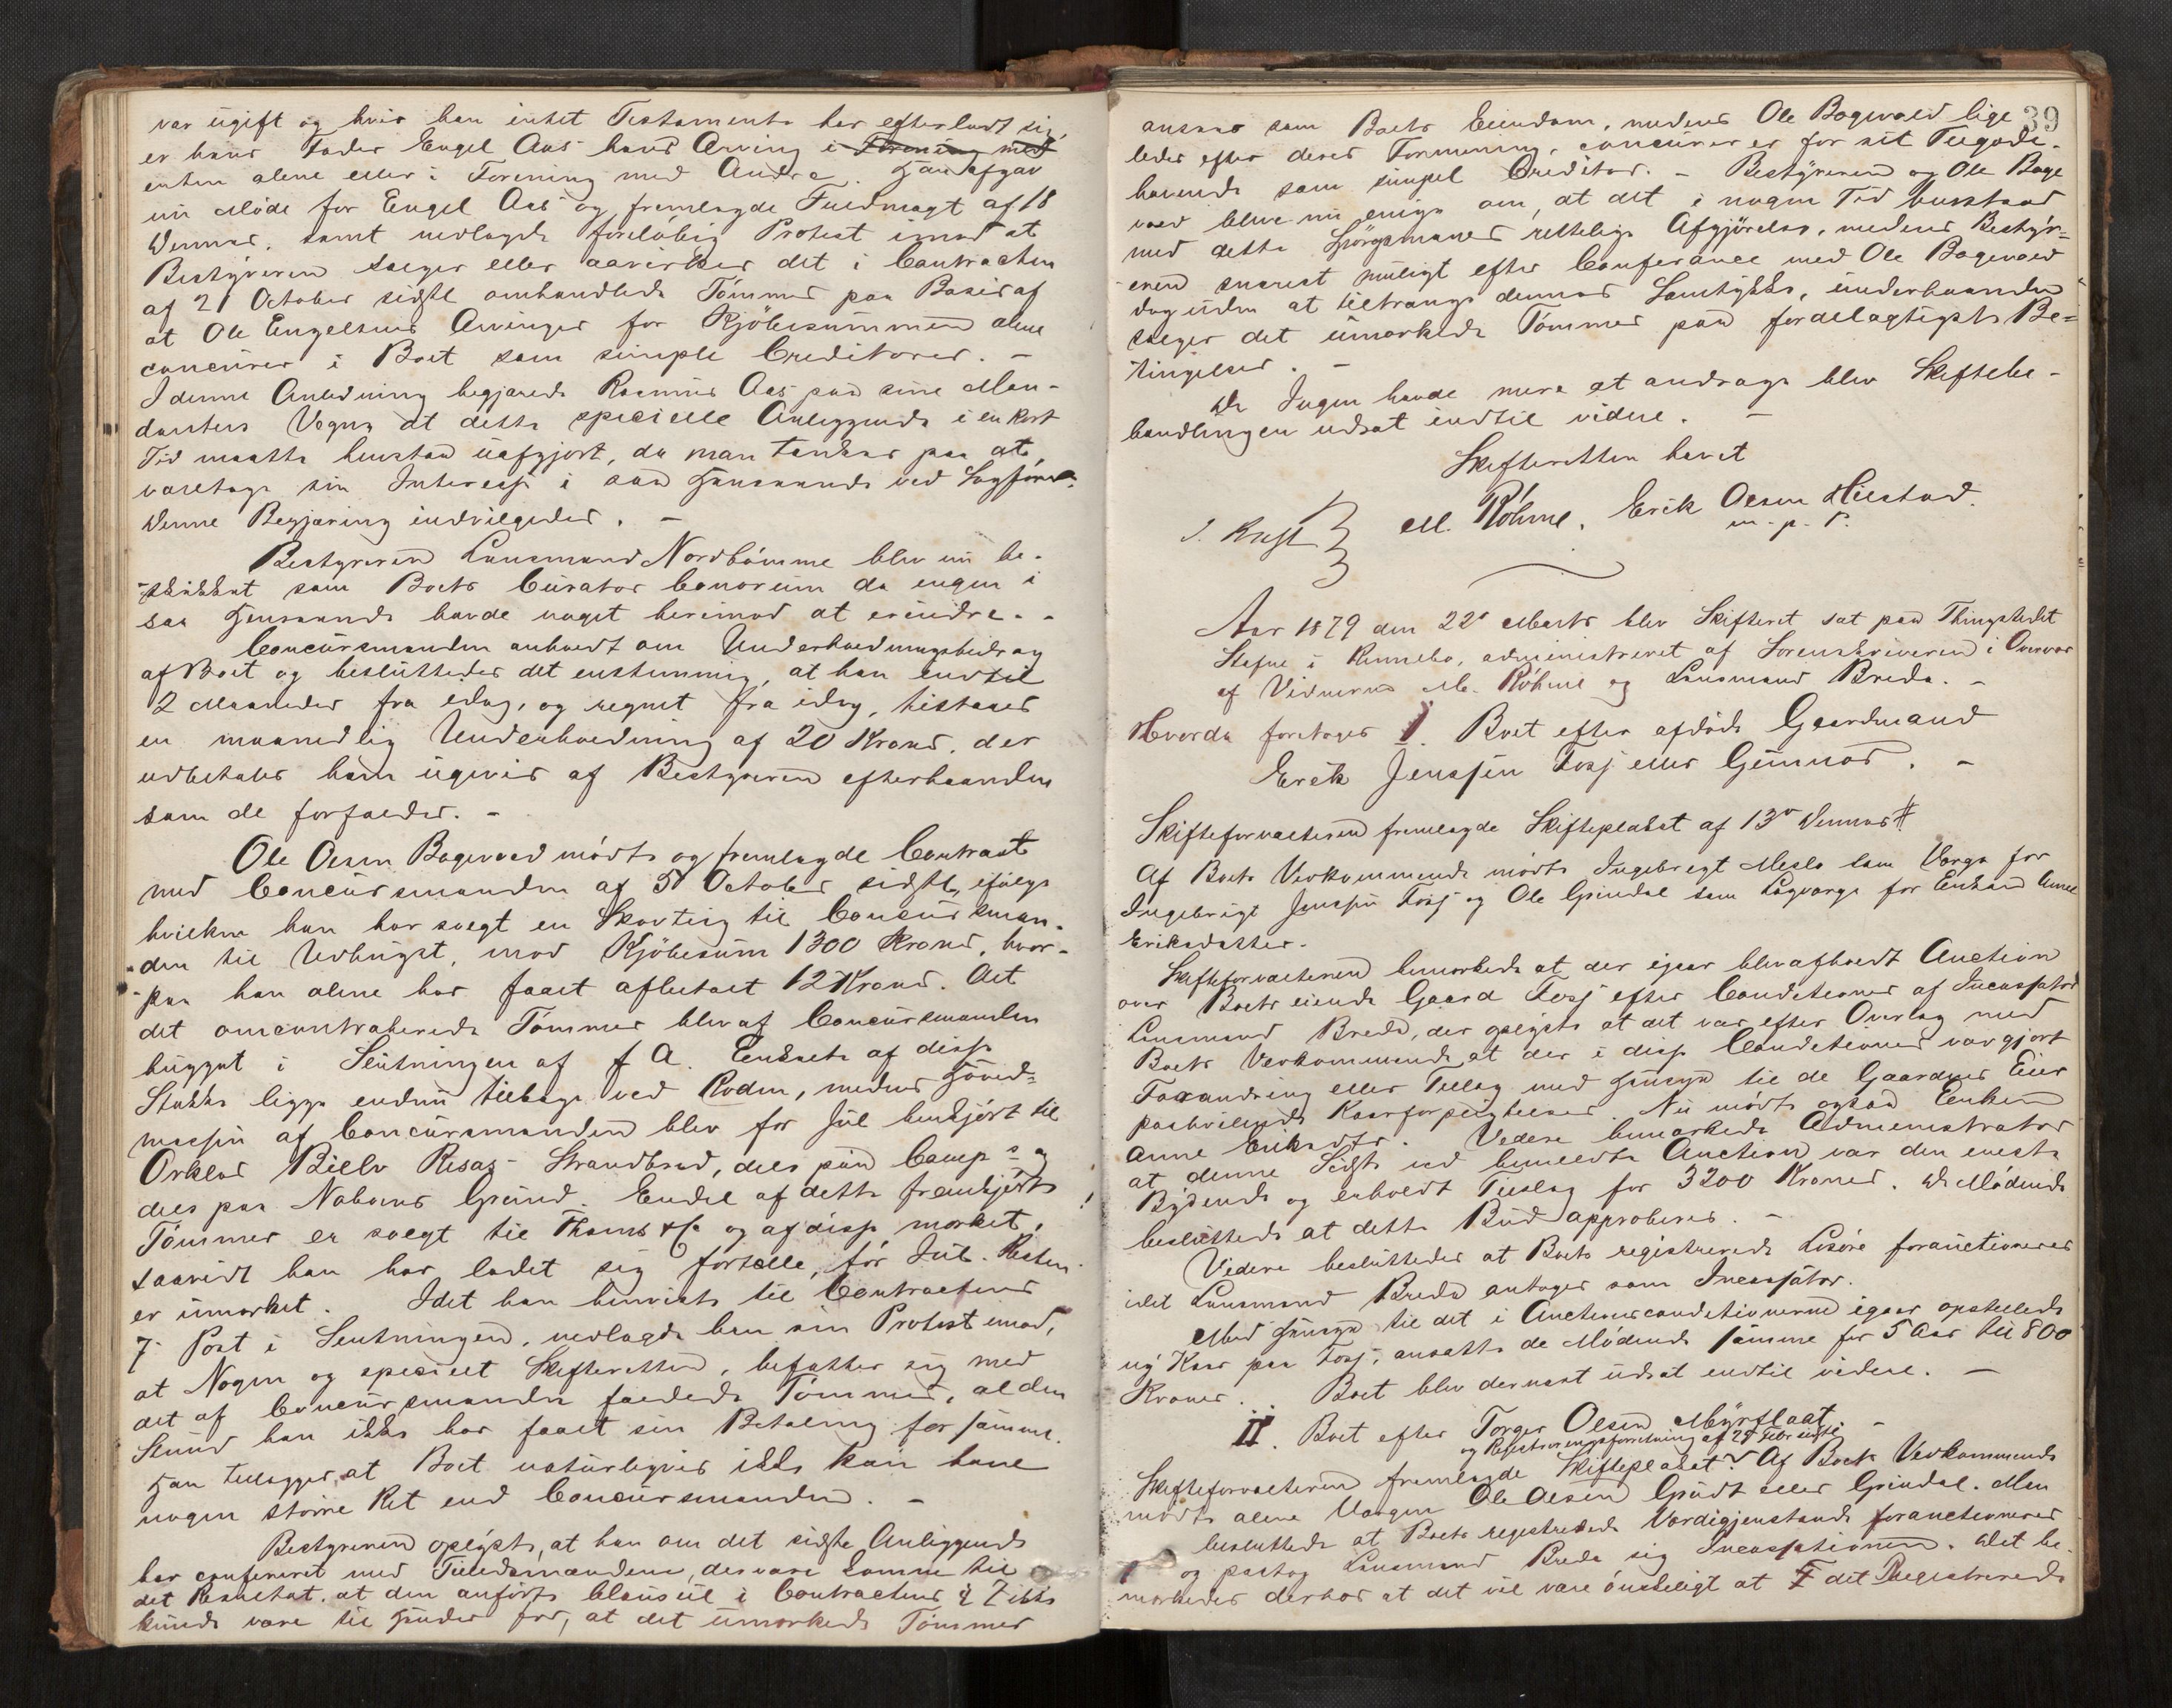 var ugift og hvis han intet Testamente har efterladt sig,
er hans Fader Engel Aas hans Arving i Forening med
enten alene eller i Forening med Andre. Han afgav
nu Møde for Engel Aas og fremlagde Fuldmagt af 18
dennes, samt nedlagde foreløbig Protest imod at
Bestyreren sælger eller aavirker det i Contracten
af 21 October sidstl. omhandlede Tømmer paa Basis af
at Ole Engelsens Arvinger for Kjøbesummen alene
concurrer i Boet som simple Creditorer. –
I denne Anledning begjærede Rasmus Aas paa sine Man-
danters Vegne at dette specielle Anliggende i en kort
Tid maatte henstaa uafgjort, da man tænker paa at
varetage sin Interesse i saa Henseende ved Sagfører.
Denne Begjæring indvilgedes. –
Bestyreren Lensmand Nordbømme blev nu be-
skikket som Boets Curator bonorum da ingen i
saa Henseende havde noget herimod at erindre. -
Concursmanden anholdt om Underholdningsbidrag
af Boet og besluttedes det enstemmig, at han indtil
2 Maaneder fra idag, og regnet fra idag, tilstaaes
en maanedlig Underholdning af 20 Kroner, der
udbetales ham ugevis af Bestyreren efterhaanden
som de forfalder. –
Ole Olsen Bagevold mødte og fremlagde Contract
med Concursmanden af 5 October sidstl, ifølge
hvilken han har solgt en Skovteig til Concursman-
den til Udhugst, mod Kjøbesum 1300 Kroner, hvor-
paa han alene har faaet afbetalt 12 Kroner. Alt
det omcontraherede Tømmer blev af Concursmanden
hugget i Slutningen af f. A. Enkelte af disse
Stokke ligge endnu tilbage ved Roden, medens Hoved-
massen af Concursmanden blev før Jul henkjørt til
Orklas Bielv Resas Strandbred, dels paa Camp- og
dels paa Naboens Grund. Endel af dette fremkjørte
Tømmer er solgt til Thams & Co og af disse mærket,
saavidt han har ladet sig fortælle, før Jul. Resten
er umærket. Idet han henviste til Contractens
7. Post i Slutningen, nedlagde han sin Protest imod,
at Nogen og specielt Skifteretten, befatter sig med
det af Concursmanden fældede Tømmer, al den
Stund han ikke har faaet sin Betaling for samme.
Han tillægger at Boet naturligvis ikke kan have
nogen større Ret end Concursmanden. –
Bestyreren oplyste, at han om det sidste Anliggende
har confereret med Tillidsmændene, der vare komne til
det Resultat, at den anførte Clausul i Contractens § 7 ikke
kunde være til Hinder for, at det umærkede Tømmer
39
ansees som Boets Eiendom, medens Ole Bagevold lige-
ledes efter deres Formening, concurrerer for sit Tilgode-
havende som simpel Creditor. – Bestyreren og Ole Bage
vold bleve nu enige om, at det i nogen Tid henstaar
med dette Spørgsmaals rettelige Afgjørelse, medens Bestyr-
eren snarest muligt efter Conferance med Ole Bagevold
dog uden at tiltrænge dennes Samtykke, underhaanden
sælger det umærkede Tømmer paa fordelagtigste Be-
tingelser. –
Da Ingen havde mere at andrage blev Skiftebe-
handlingen udsat indtil videre. –
Skifteretten hævet
J. Kraft M. Røhme. Erik Olsen Hilstad.
m. p. P.
Aar 1879 den 22de Marts blev Skifteret sat paa Thingstedet
Stefne i Rennebo, administreret af Sorenskriveren i Overvær
af Vidnerne M. Røhme og Lensmand Breda. –
Hvorda foretoges I. Boet efter afdøde Gaardmand
Erik Jenssen Fosj eller Gunnes. –
Skifteforvalteren fremlagde Skifteplakat af 13de Dennes #
Af Boets Vedkommende mødte Ingebrigt Meslo som Værge for
Ingebrigt Jenssen Fosj og Ole Grindal som Lagværge for Enken Anne
Eriksdatter.
Skifteforvalteren bemærkede at der igaar blev afholdt Auction
over Boets eiende Gaard Fosj efter Conditioner af Incassator
Lensmand Breda, der oplyste at det var efter Overlæg med
Boets Vedkommende at der i disse Conditioner var gjort
Forandring eller Tillæg med Hensyn til de Gaardens Eier
paahvilende Kaarforpligtelser. Nu mødte ogsaa Enken
Anne Eriksdtr. Videre bemærkede Administrator
at denne Sidste ved bemeldte Auction var den eneste
Bydende og erholdt Tilslag for 3200 Kroner. De Mødende
besluttede at dette Bud approberes. –
Videre besluttedes at Boets registrerede Løsøre forauctioneres
idet Lensmand Breda antages som Incassator.
Med Hensyn til det i Auctionsconditionerne igaar opstillede
ny Kaar paa Fosj, ansatte de Mødende samme for 5 Aar til 800
Kroner. Boet blev dernæst udsat indtil videre. –
II. Boet efter Torger Olsen Myrflaat –
og Registreringsforretning af 28 Febr sidstl
Skifteforvalteren fremlagde Skifteplakat. Af Boets Vedkommende
mødte alene Værgen Ole Olsen Grudt eller Grindal. Man
besluttede at Boets registrerede Værdigjenstande forauctioneres
og paatog Lensmand Breda sig Incassationen. Det be-
mærkedes derhos at det vil være ønskeligt at det Registrerede